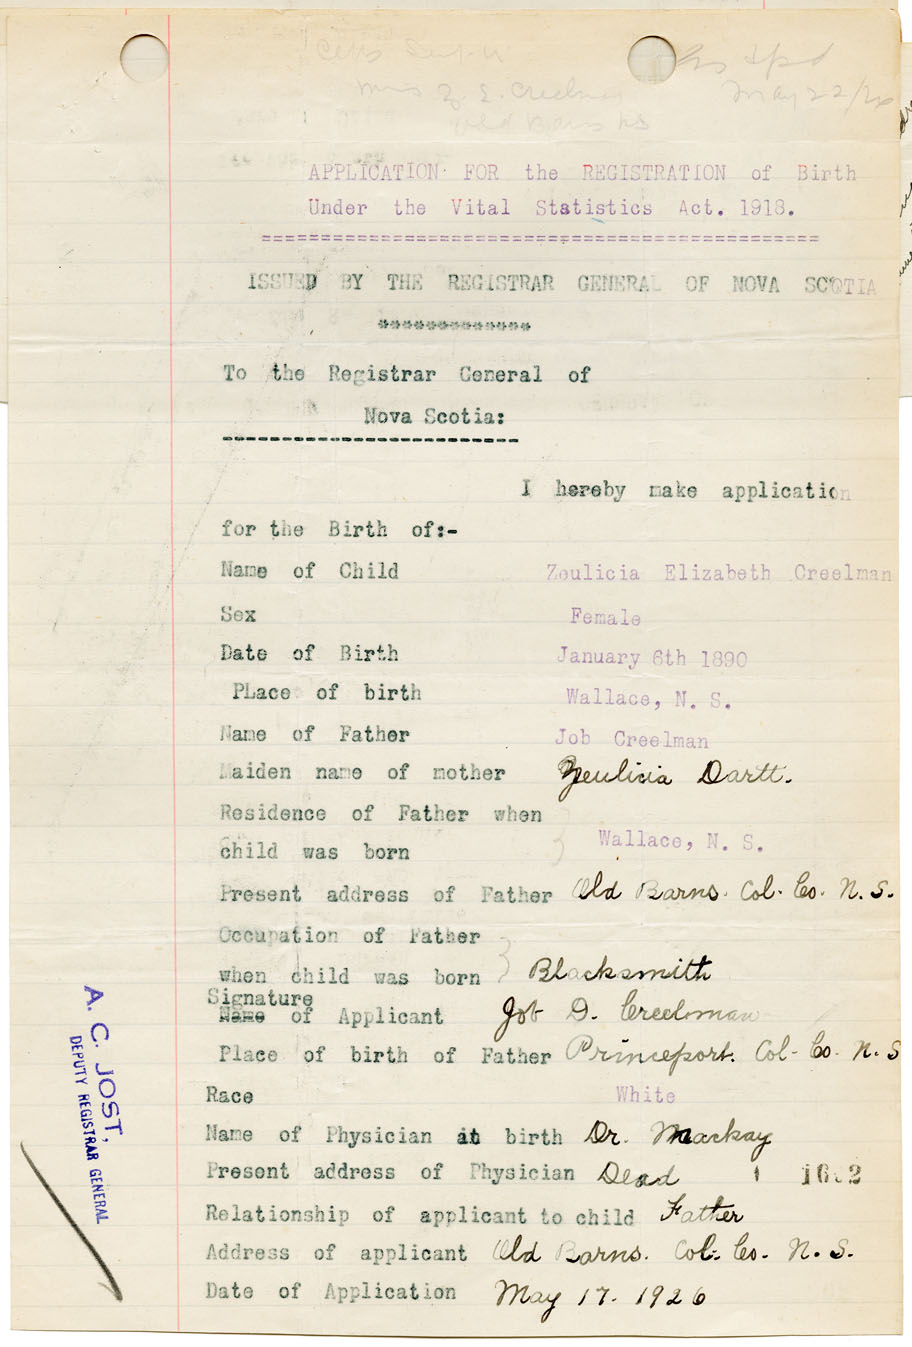 May 22/26
Mrs Z. E. Creelman
Old Barns NS
APPLICATION FOR the REGISTRATION of Birth
Under the Vital Statistics Act. 1918.
=================================================
ISSUED BY THE REGISTRAR GENERAL OF NOVA SCOTIA
*************
To the Registrar General of
Nova Scotia:
-------------------------
I hereby make application
for the Birth of:-
Name of Child Zeulicia Elizabeth Creelman
Sex Female
Date of Birth January 6th 1890
PLace of birth Wallace, N. S.
Name of Father Job Creelman
Maiden name of mother Zeulicia Dartt.
Residence of Father when
child was born Wallace, N. S.
Present address of Father Old Barns. Col. Co. N. S.
Occupation of Father
when child was born Blacksmith
Signature
Name of Applicant Job D. Creelman
Place of birth of Father Princeport. Col- Co. N. S
Race White
Name of Physician at birth Dr. Mackay
Present address of Physician Dead
Relationship of applicant to child Father
Address of applicant Old Barns. Col. Co. N. S.
Date of Application May 17. 1926
A. C. JOST,
DEPUTY REGISTRAR GENERAL